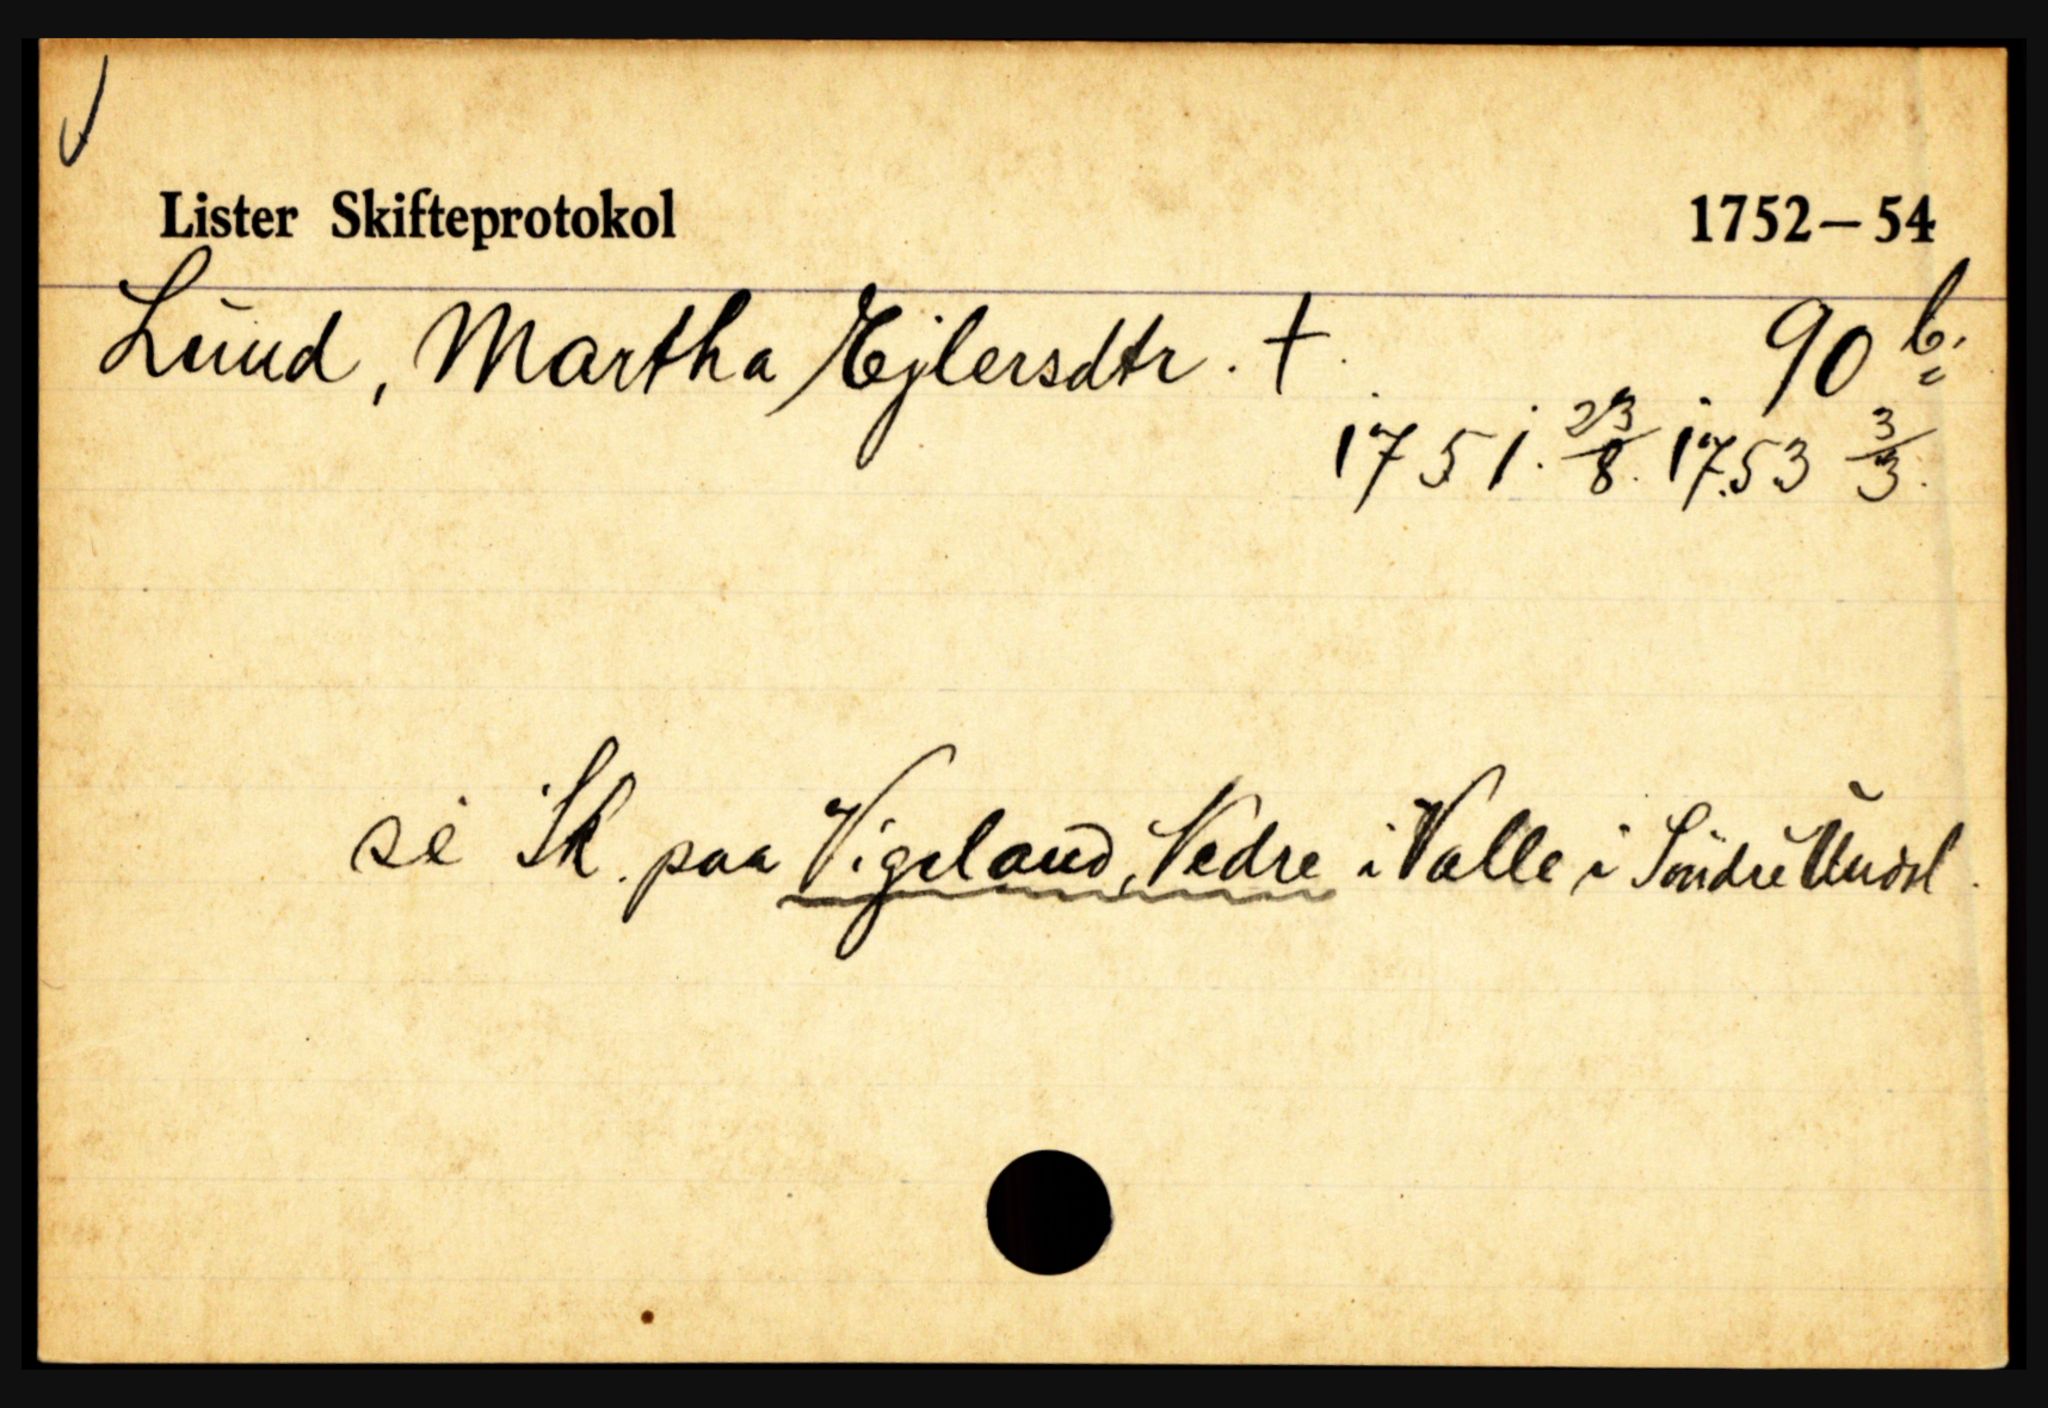 Lister Skifteprotokol 1752–54
Lund, Martha Ejlersdtr. † 90 b.
1751. 23/8. 1753 3/3.
se Sk. paa Vigeland, Nedre i Valle i Söndre Undal.